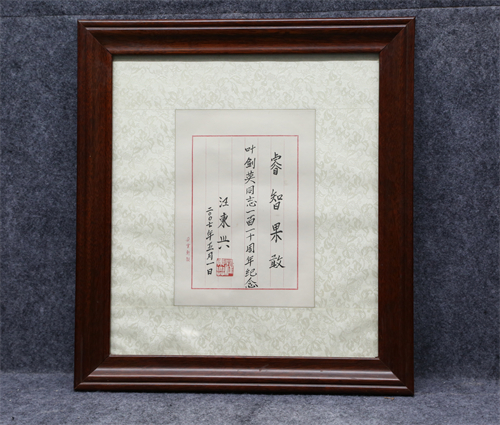 睿智果敢
叶剑英同志一百一十周年纪念
汪东兴
二〇〇七年五月一日